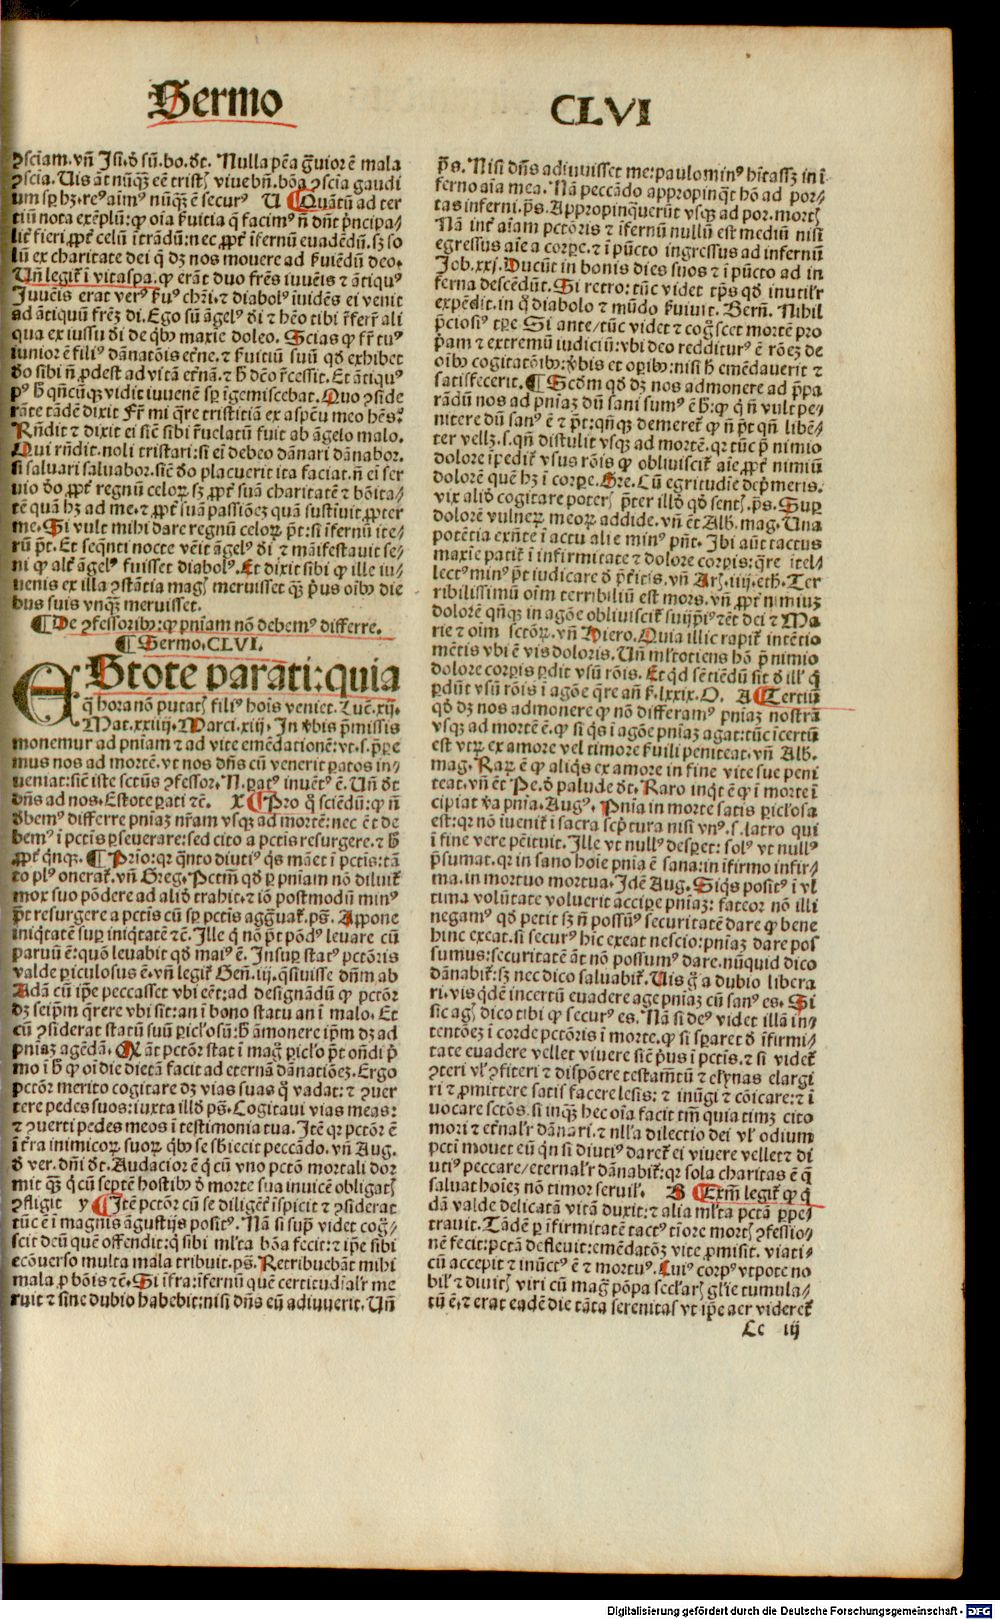 Sermo
CLVI
ꝯsciam. vñ Isi. đ sũ. bo. dt. Nulla pẽa g̃uior ẽ mala
ꝯscia. Uis aũt nũqꝫ eẽ tristꝭ viue bñ. bõa ꝯscia gaudi
um sp hꝫ. reꝰ aĩmꝰ nũqꝫ ẽ securꝰ U Quãtũ ad ter
tiũ nota exẽplũ: ꝙ oĩa ẜuitia q̃ facimꝰ ñ dñt pͥncipa-
lit̃ fieri ꝓpt̃ celũ ĩtrãdũ: nec ꝓpt̃ ĩfernũ euadẽdũ. sꝫ so
lũ ex charitate dei q̃ dꝫ nos mouere ad ẜuiẽdũ deo.
Uñ legit̃ ĩ vitaspa. ꝙ erãt duo frẽs iuuẽis ⁊ ãtiquꝰ
Iuuẽis erat verꝰ ẜuꝰ chẽi. ⁊ diabolꝰ iuidẽs ei venit
ad ãtiquũ frẽꝫ di. Ego sũ ãgelꝰ dĩ ⁊ hẽo tibi r̃ferr̃ ali
qua ex iussu dĩ de qͥbꝰ maxie doleo. Scias ꝙ fr̃ tuꝰ
iunior ẽ filiꝰ dãnatõis etñe. ⁊ ẜuitiũ suũ qđ exhibet
đo sibi ñ ꝓdest ad vitã et̃nã. ⁊ h̃ dẽo r̃cessit. Et ãtiquꝰ
pꝰ h̃ qñcũqꝫ vidit iuuenẽ sp ĩgemiscebat. Quo ꝯside
rãte tãdẽ dixit Fr̃ mi q̃re tristitiã ex aspẽu meo hẽs?
Rñdit ⁊ dixit ei siẽ sibi r̃uelatũ fuit ab ãgelo malo.
Qui rñdit. noli tristari: si ei debeo dãnari dãnabor.
si saluari saluabor. siẽ đo placuerit ita faciat. ñ ei ser
uio đo ꝓpt̃ regnũ celoꝝ sꝫ ꝓpt̃ suã charitatẽ ⁊ bõita-
tẽ quã hꝫ ad me. ⁊ ꝓpt̃ suã passiõeꝫ quã sustiuit ꝓpter
me. Si vult mihi dare regnũ celoꝝ p̃t: si ĩfernũ ite-
rũ p̃t. Et seqñti nocte vẽit ãgelꝰ dĩ ⁊ mãifestauit se-
ni ꝙ alt̃ ãgelꝰ fuisset diabolꝰ. Et dixit sibi ꝙ ille iu-
uenis ex illa ꝯstãtia magꝭ meruisset qꝫ pͥus oĩbꝰ die
bus suis vnqꝫ meruisset.
¶ De ꝯfessoribꝰ: ꝙ pñiam nõ debemꝰ differre.
¶ Sermo. CLVI.
EStote parati: quia
q̃ hora nõ putatꝭ filiꝰ hoĩs veniet. Luẽ. xij.
Mat. xxiiij. Marci. xiij. In v̓bis p̃missis
monemur ad pñiam ⁊ ad vite emẽdationẽ: vt. s. p̃pe
mus nos ad mortẽ. vt nos dñs cũ venerit p̱atos in-
ueniat: siẽ iste sctũs ꝯfessor. N. patꝰ inuẽtꝰ ẽ. Uñ dt
dñs ad nos. Estote p̱ati ⁊ẽ. X ¶ Pro q̃ sciẽdũ: ꝙ ñ
đbemꝰ differre pñiaꝫ nr̃am vsqꝫ ad mortẽ: nec ẽt de
bemꝰ ĩ pctis p̱seuerare: sed cito a pctis resurgere. ⁊ h̃
ꝓpt̃ qͥnqꝫ. ¶ Prĩo: qꝛ qͣnto diutiꝰ q̃s mãet ĩ pctis: tã
to plꝰ onerat̃. vñ Greg. Pctm̃ qđ p̱ pñiam nõ diluit̃
mox suo põdere ad aliđ trahit. ⁊ iõ postmodũ minꝰ
p̃t resurgere a pctĩs cũ sp pctĩs agg̃uat̃. pš. Appone
iniq̃tatẽ sup iniq̃tatẽ ⁊ẽ. Ille q̃ nõ p̃t põdꝰ leuare cũ
paruũ ẽ: quõ leuabit qđ maiꝰ ẽ. Insup statꝰ pctõris
valde p̱iculosus ẽ. vñ legit̃ Geñ. iij. q̃siuisse dñm ab
Adã cũ ip̃e peccasset vbi eẽt: ad designãdũ ꝙ pctõr
dꝫ seip̃m q̃rere vbi sit: an ĩ bono statu an ĩ malo. Et
cũ ꝯsiderat statũ suũ p̱iclosũ: h̃ ãmonere ip̃m dꝫ ad
pñiaꝫ agẽdã. Qđ aũt pctõr stat ĩ mag̃ p̱iclo p̃t oñdi pͥ
mo ĩ h̃ ꝙ oĩ die dietã facit ad eternã dãnatiõeꝫ. Ergo
pctõr merito cogitare dꝫ vias suas q̃ vadat: ⁊ ꝯuer
tere pedes suos: iuxta illđ pš. Cogitaui vias meas:
⁊ ꝯuerti pedes meos ĩ testimonia tua. Itẽ qꝛ pctõr ẽ
ĩ t̃ra inimicoꝝ suoꝝ qͥbꝰ se sb̃iecit peccãdo. vñ Aug.
đ ver. dñi dt. Audacior ẽ q̃ cũ vno pctõ mortali dor
mit qꝫ q̃ cũ septẽ hostibꝰ đ morte sua inuicẽ obligatꝭ
ꝯfligit y ¶ Itẽ pctõr cũ se diligẽt̃ ĩspicit ⁊ ꝯsiderat
tũc ẽ ĩ magnis ãgustijs positꝰ. Nã si sup̃ videt cog̃-
scit deũ quẽ offendit: q̃ sibi ml̃ta bõa fecit: ⁊ ip̃e sibi
ecõuerso multa mala tribuit. pš. Retribuebãt mihi
mala p bõis ⁊ẽ. Si ĩfra: ĩfernũ quẽ certitudĩalr̃ me
ruit ⁊ sine dubio habebit: nisi dñs eũ adiuuerit. Uñ
pš. Nisi dñs adiuuisset me: paulominꝰ hĩtassꝫ in ĩ
ferno aĩa mea. Nã peccãdo appropinqͣt hõ ad por-
tas inferni. pš. Appropinquerũt vsqꝫ ad por. mortꝭ
Nã int̃ aĩam pctõris ⁊ ĩfernũ nullũ est mediũ nisi
egressus aĩe a corpe. ⁊ ĩ pũcto ingressus ad infernũ
Job. xxj. Ducũt in bonis dies suos ⁊ ĩ pũcto ad in
ferna descẽdũt. Si retro: tũc videt tp̃s qđ inutilr̃
expẽdit. in q̃ diabolo ⁊ mũdo ẜuiuit. Berñ. Nihil
p̃ciosiꝰ tp̃e Si ante/ tũc videt ⁊ cog̃scet mortẽ pro
p̃am ⁊ extremũ iudiciũ: vbi deo redditurꝰ ẽ rõeꝫ de
oĩbꝰ cogitatõĩbꝰ: v̓bis et oꝑibꝰ: nisi h̃ emẽdauerit ⁊
satisfecerit. ¶ Scđm qđ dꝫ nos admonere ad p̃pa
rãdũ nos ad pñiaꝫ dũ sani sumꝰ ẽ h̃: ꝙ q̃ ñ vult pe-
nitere dũ sanꝰ ẽ ⁊ p̃t: qñqꝫ demeret̃ ꝙ ñ p̃t qñ libẽ-
ter vellꝫ. s. qñ distulit vsqꝫ ad mortẽ. qꝛ tũc p̃ nimio
dolore ĩpedit̃ vsus rõis ꝙ obliuiscit̃ aĩe ꝓpt̃ nimiũ
dolorẽ quẽ hꝫ ĩ corpe. Gre. Cũ egritudie dep̃meris.
vix aliđ cogitare poterꝭ p̃ter illđ qđ sentꝭ. pš. Sup
dolorẽ vulneꝝ meoꝝ addide. vñ ẽt Alb. mag. Una
potẽtia exñte ĩ actu alie minꝰ pñt. Ibi aũt tactus
maxie patit̃ ĩ infirmitate ⁊ dolore corpis: q̃re ĩtel-
lectꝰ minꝰ p̃t iudicare đ p̃t̃itis. vñ Arꝭ. iiij. eth. Ter
ribilissimũ oĩm terribiliũ est mors. vñ ꝓpt̃ nimiuꝫ
dolorẽ qñqꝫ in agõe obliuiscit̃ suijp̃iꝰ ⁊ẽt dei ⁊ Ma
rie ⁊ oĩm sctõꝝ. vñ Hiero. Quia illic rapit̃ intẽtio
mẽtis vbi ẽ vis doloris. Uñ ml̃totiens hõ p̃ nimio
dolore corpis p̱dit vsũ rõis. Et qđ sẽtiẽdũ sit đ ill̓ q̃
p̱dũt vsũ rõis ĩ agõe q̃re añ ẜ. lxxix. O. A ¶ Tertiũ
qđ dꝫ nos admonere ꝙ nõ differamꝰ pñiaꝫ nostrã
vsqꝫ ad mortẽ ẽ. ꝙ si q̃s ĩ agõe pñiaꝫ agat: tũc ĩcertũ
est vtꝝ ex amore vel timore ẜuili peniteat. vñ Alb.
mag. Raꝝ ẽ ꝙ aliq̃s ex amore in fine vite sue peni
teat. vñ ẽt Pe. đ palude dt. Raro inqͥt ẽ ꝙ ĩ morte ĩ
cipiat v̓a pñia. Augꝰ. Pñia in morte satis p̱iclosa
est: qꝛ nõ iuenit̃ ĩ sacra scp̃tura nisi vnꝰ. s. latro qui
ĩ fine vere pẽituit. Ille vt nullꝰ desp̱et: solꝰ vt nullꝰ
p̃sumat. qꝛ in sano hoĩe pñia ẽ sana: in ĩfirmo infir-
ma. in mortuo mortua. Idẽ Aug. Siq̃s positꝰ ĩ vl̃
tima volũtate voluerit accipe pñiaꝫ: fateor nõ illi
negamꝰ qđ petit sꝫ ñ possũꝰ securitatẽ dare ꝙ bene
hinc exeat. si securꝰ hic exeat nescio: pñiaꝫ dare pos
sumus: securitatẽ aũt nõ possumꝰ dare. nũquid dico
dãnabit̃: sꝫ nec dico saluabit̃. Uis g̃ a dubio libera
ri. vis q̃dẽ incertũ euadere age pñiaꝫ cũ sanꝰ es. Si
sic agꝭ dico tibi ꝙ securꝰ es. Nã si deꝰ videt illã in-
tentõeꝫ ĩ corde pctõris ĩ morte. ꝙ si sparet̃ đ ĩfirmi-
tate euadere vellet viuere siẽ pͥus ĩ pctis. ⁊ si videt̃
ꝯteri vl̃ ꝯfiteri ⁊ dispõere testam̃tũ ⁊ elynas elargi
ri ⁊ ꝓmittere satisfacere lesis: ⁊ inũgi ⁊ cõicare: ⁊ ĩ
uocare sctõs. si inqꝫ hec oĩa facit tm̃ quia timꝫ cito
mori ⁊ et̃nalr̃ dãnari. ⁊ nl̃la dilectio dei vl̃ odium
pcti mouet eũ q̃n si diutiꝰ daret̃ ei viuere vellet ⁊ di
utiꝰ peccare/ eternalr̃ dãnabit̃: qꝛ sola charitas ẽ q̃
saluat hoĩeꝫ nõ timor seruil̓. B ¶ Exm̃ legit̃ ꝙ q̃
dã valde delicatã vitã duxit: ⁊ alia ml̃ta pctã p̱pe-
trauit. Tãdẽ p̱ ĩfirmitatẽ tactꝰ tĩore mortꝭ ꝯfessio-
nẽ fecit: pctã defleuit: emẽdatõꝫ vite ꝓmisit. viati-
cũ accepit ⁊ inũctꝰ ẽ ⁊ mortuꝰ. Cuiꝰ corpꝰ vtpote no
bil̓ ⁊ diuitꝭ viri cũ mag̃ põpa seclarꝭ gl̃ie tumula-
tũ ẽ. ⁊ erat eadẽ die tãta serenitas vt ip̃e aer videret̃
Cc iij
Digitalisierung gefördert durch die Deutsche Forschungsgemeinschaft - DFG